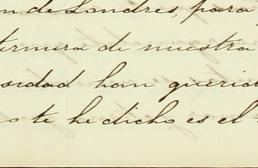 n de Londres, para
termera de nuestra
sidad han querid
s te he dicho es el